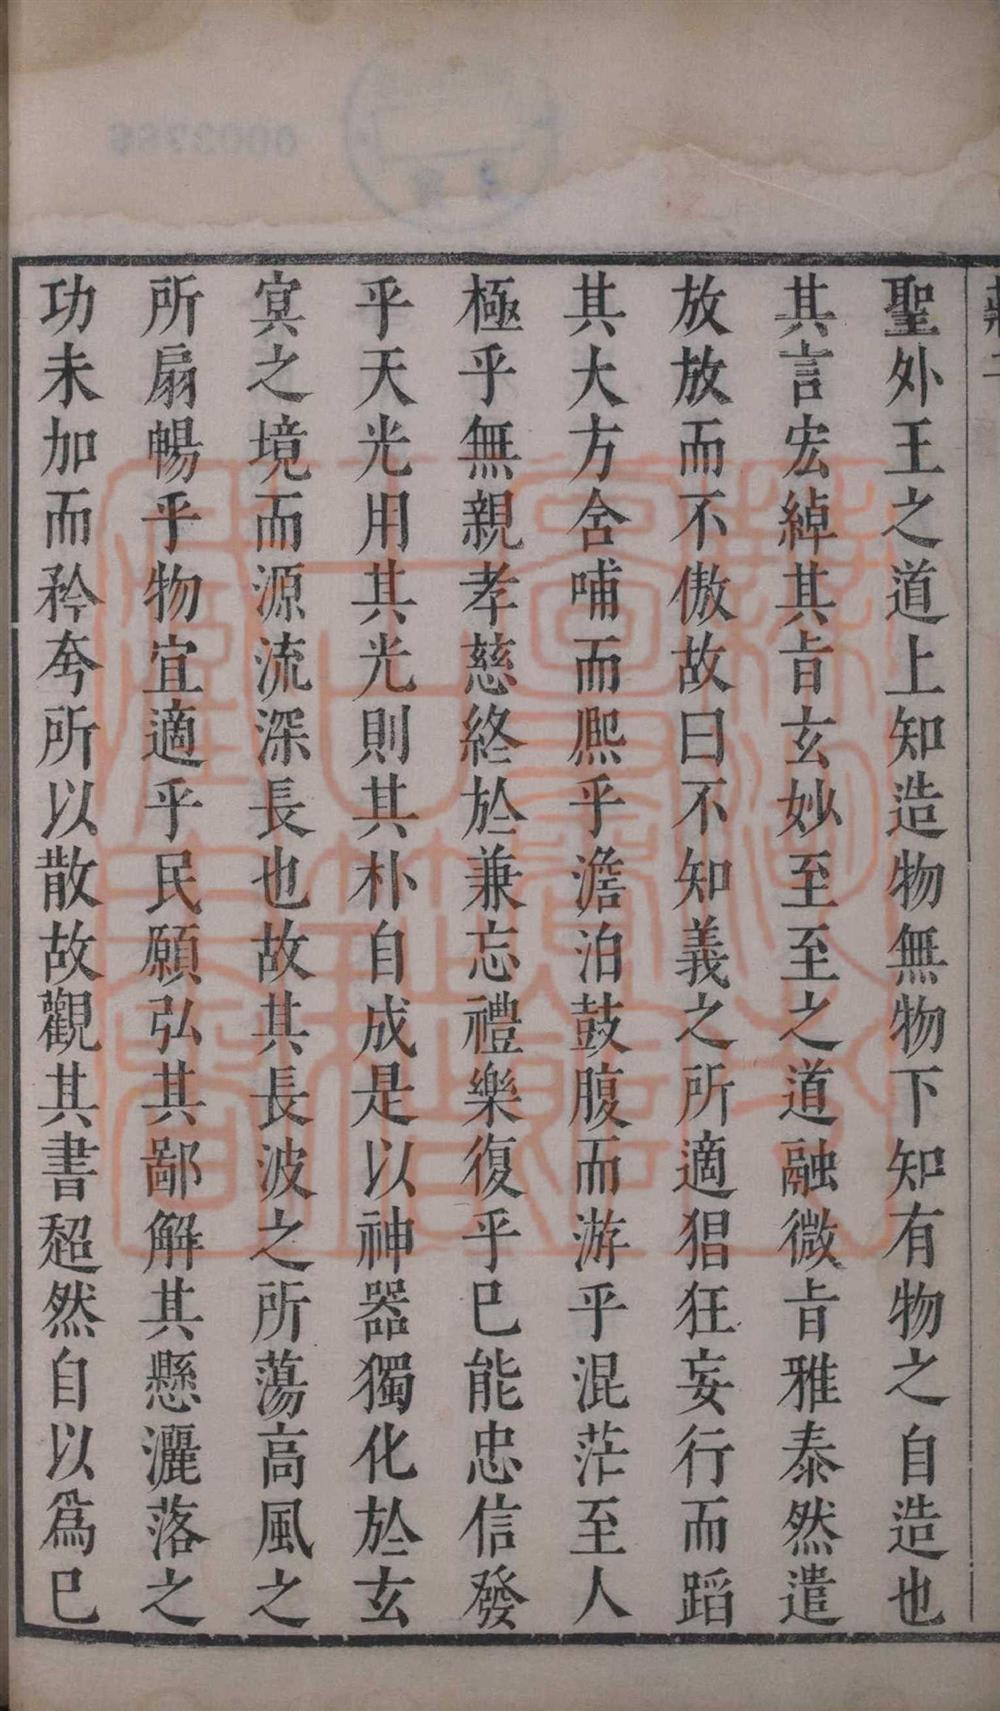 聖外王之道上知造物無物下知有物之自造也
其言宏綽其旨玄妙至至之道融微旨雅泰然遣
放放而不傲故曰不知義之所適猖狂妄行而蹈
其大方含哺而熈乎澹泊鼓腹而游乎混茫至人
極乎無親孝慈終於兼忘禮樂復乎巳能忠信發
乎天光用其光則其朴自成是以神器獨化於玄
㝠之境而源流深長也故其長波之所蕩高風之
所扇暢乎物宜適乎民願弘其鄙解其懸灑落之
功未加而矜夸所以散故觀其書超然自以爲巳